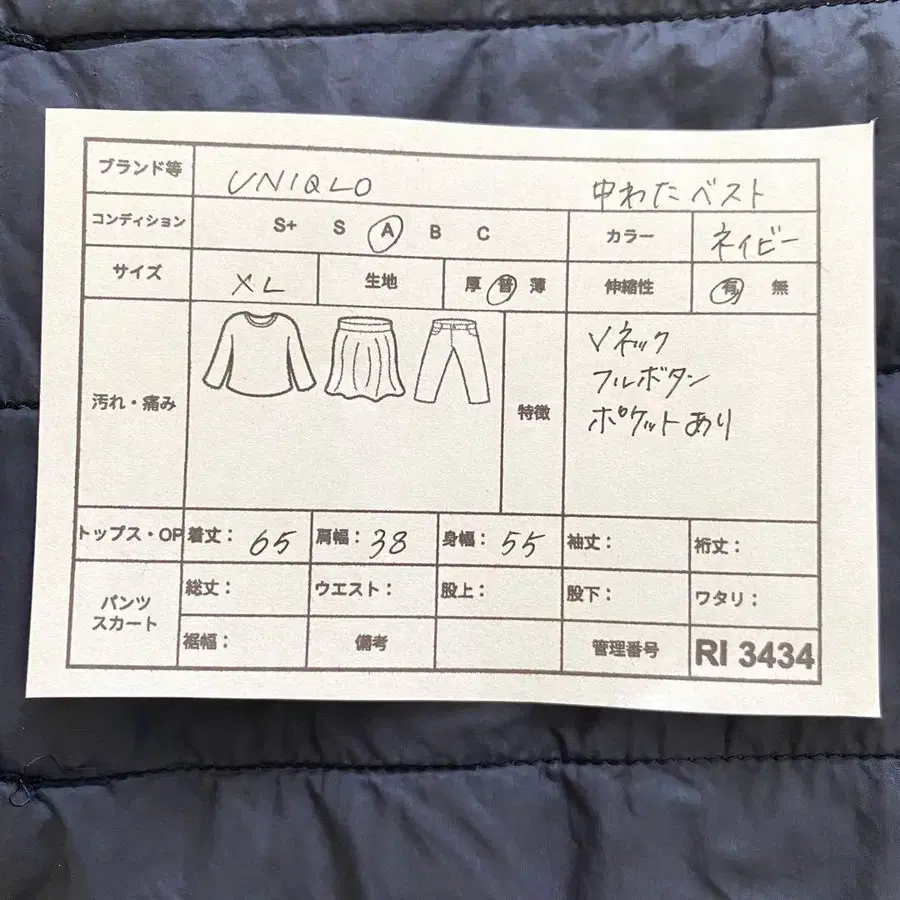 ブランド等 UNIQLO 中わたベスト
コンディション S+ S A B C カラー ネイビー
サイズ XL 生地 厚 普 薄 伸縮性 有 無
汚れ・痛み 特徴
Vネック
フルボタン
ポケットあり
トップス・OP 着丈: 65 肩幅: 38 身幅: 55 袖丈: 裄丈:
パンツ
スカート
総丈: ウエスト: 股上: 股下: ワタリ:
裾幅: 備考 管理番号 RI 3434